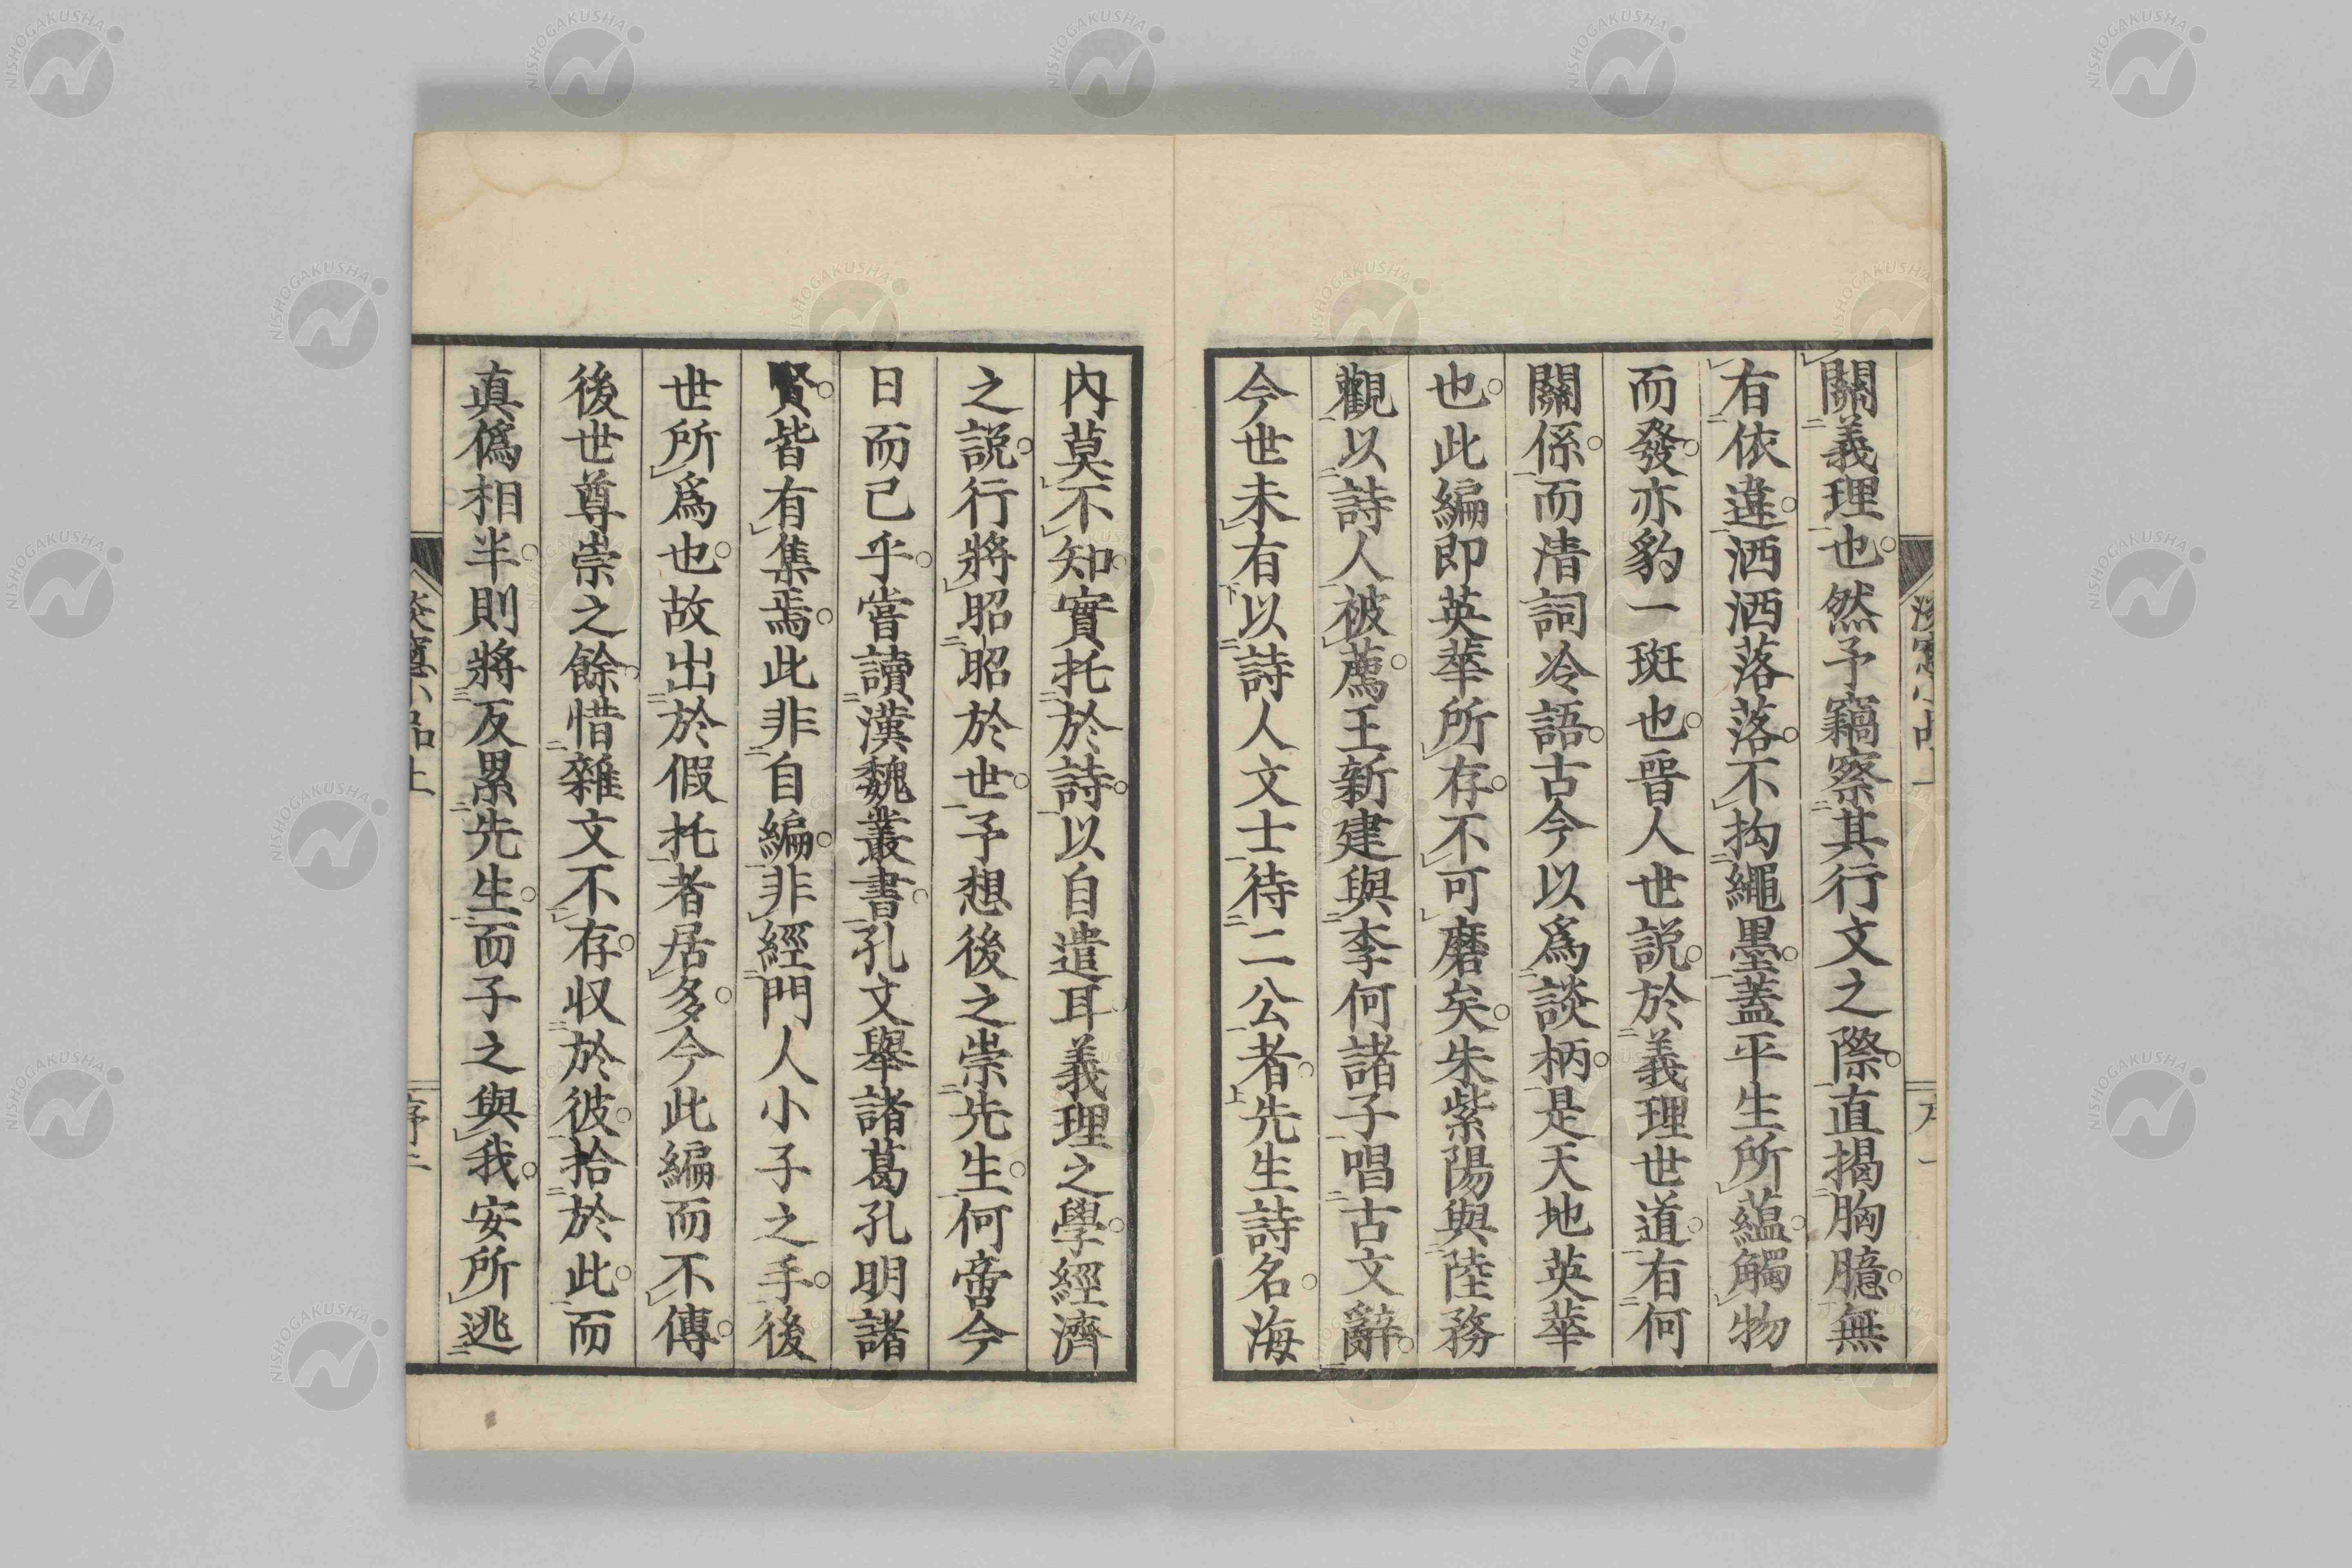 關義理也然予竊察其行文之際直揭胸臆無
有依違洒洒落落不拘繩墨蓋平生所蘊觸物
而發亦豹一斑也晉人世説於義理世道有何
關係而清詞冷語古今以爲談柄是天地英華
也此編即英華所存不可磨矣朱紫陽與陸務
觀以詩人被薦王新建與李何諸子唱古文辭
今世未有以詩人文士待二公者先生詩名海
內莫不知實托於詩以自遣耳義理之學經濟
之説行將昭昭於世予想後之崇先生何啻今
日而已乎嘗讀漢魏叢書孔文舉諸葛孔明諸
賢皆有集焉此非自編非經門人小子之手後
世所爲也故出於假托者居多今此編而不傳
後世尊崇之餘惜雜文不存収於彼拾於此而
真僞相半則將反累先生而子之與我安所逃
NISHOGAKUSHA